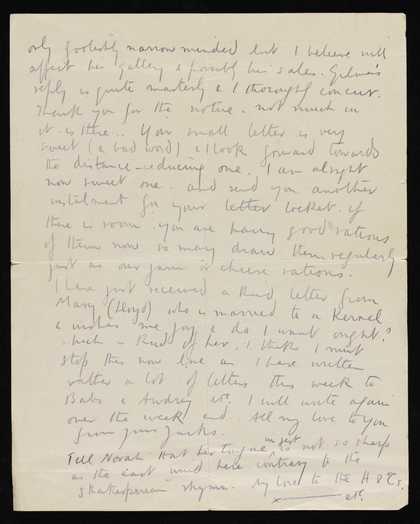 only foolishly narrow minded but I believe will
affect his gallery & possibly his sales. Gilmour's
reply is quite masterly & I thoroughly concur.
Thank you for the notice. not much in
it is there.. Your small letter is very
sweet (a bad word) & I look forward towards
the distance-reducing one. I am alright
now sweet one. and send you another
instalment for your letter locket. if
there is room. you are having good rations
of them now so many draw them regularly
just as our jam or cheese rations.
I have just received a kind letter from
Mary (Lloyd) who is married to a Kernel
& wishes me joy & do I want ought?
which is kind of her. I think I must
stop this now love as I have written
rather a lot of letters this week to
Babs & Audrey etc. I will write again
over the week end. All my love to you
from your
Tell Norah that her tongue in jest is not so sharp
as the east wind here contrary to the
Shakesperean rhyme. My love to the H &
etc.